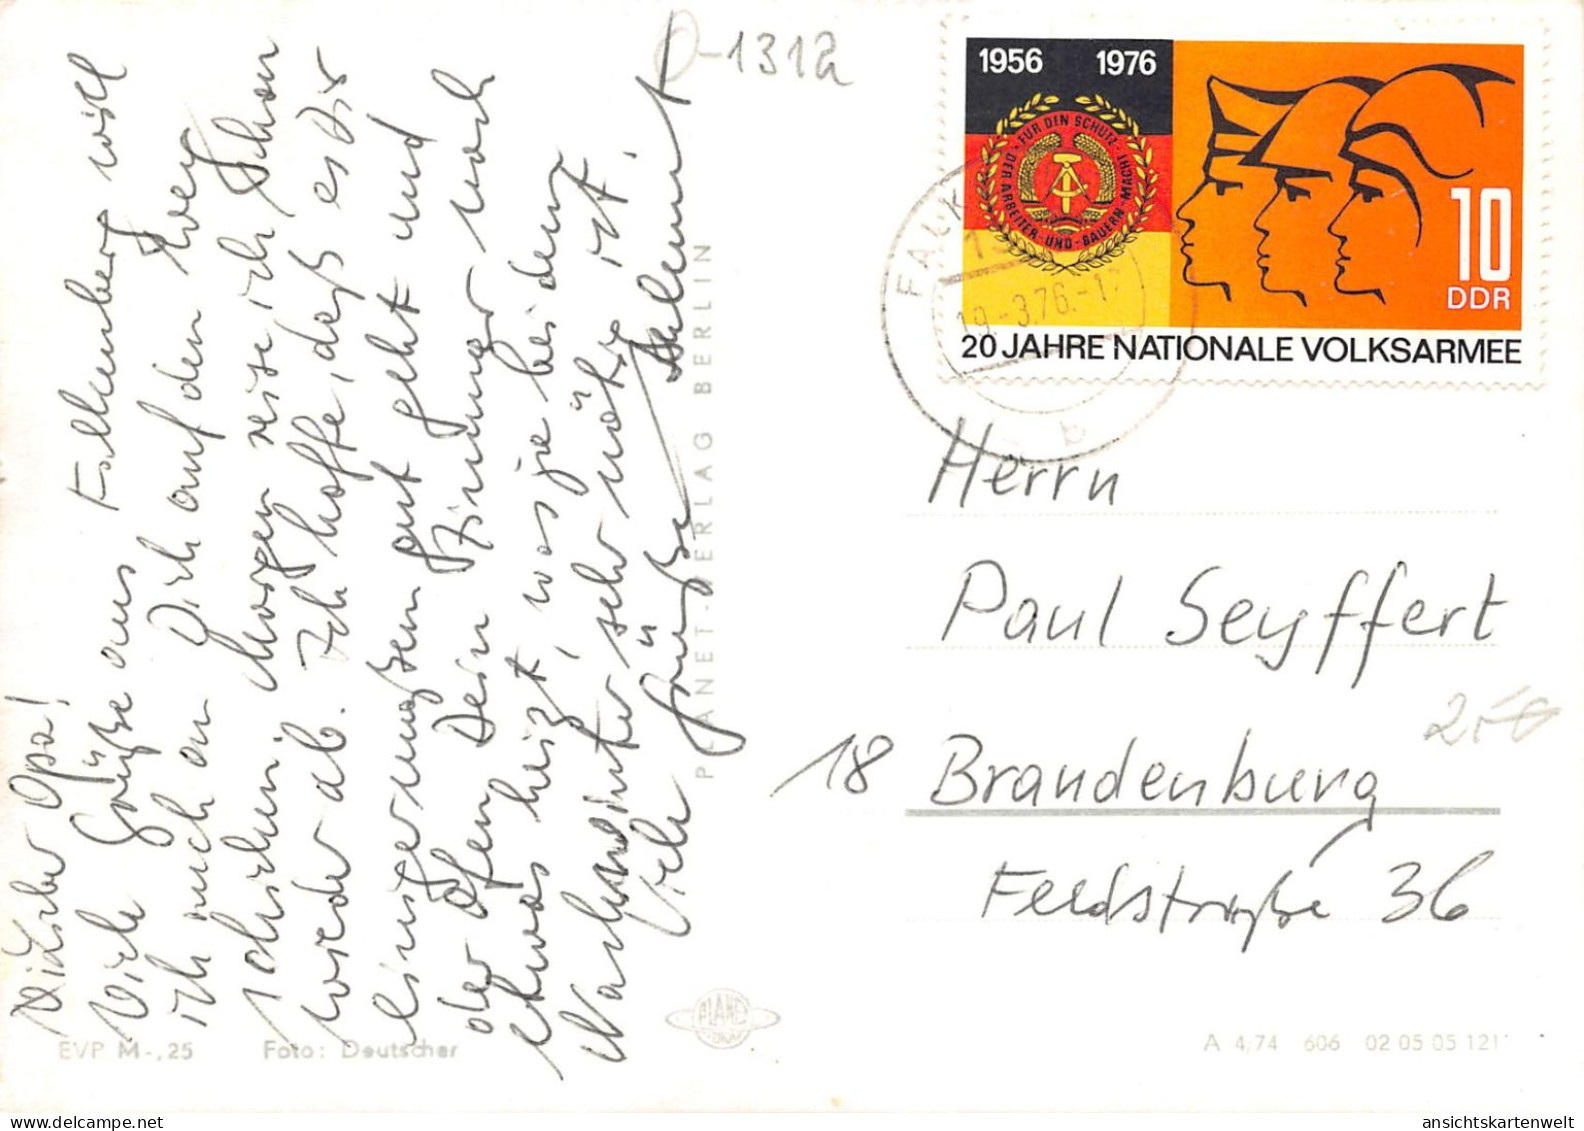 Lieber Opa!
Viele Grüße aus Falkenberg will
ich nur an Dich auf den Weg
schicken. Morgen reise ich schon
wieder ab. Ich hoffe, daß es Dir
einigermaßen gut geht und
der Ofen Dein Zimmer noch
etwas heizt, was ja bei dem
Nachwinter sehr nötig ist.
Viele Grüße Helmut
D-1312
1956 1976
FÜR DEN SCHUTZ DER ARBEITER-UND-BAUERN-MACHT
10
DDR
20 JAHRE NATIONALE VOLKSARMEE
FALK
19.-3.76.-1
b
Herrn
Paul Seyffert
18 Brandenburg
Feldstraße 36
PLANET-VERLAG BERLIN
PLANET
EVP M -,25 Foto: Deutscher
A 4/74 606 02 05 05 121
ansichtskartenwelt